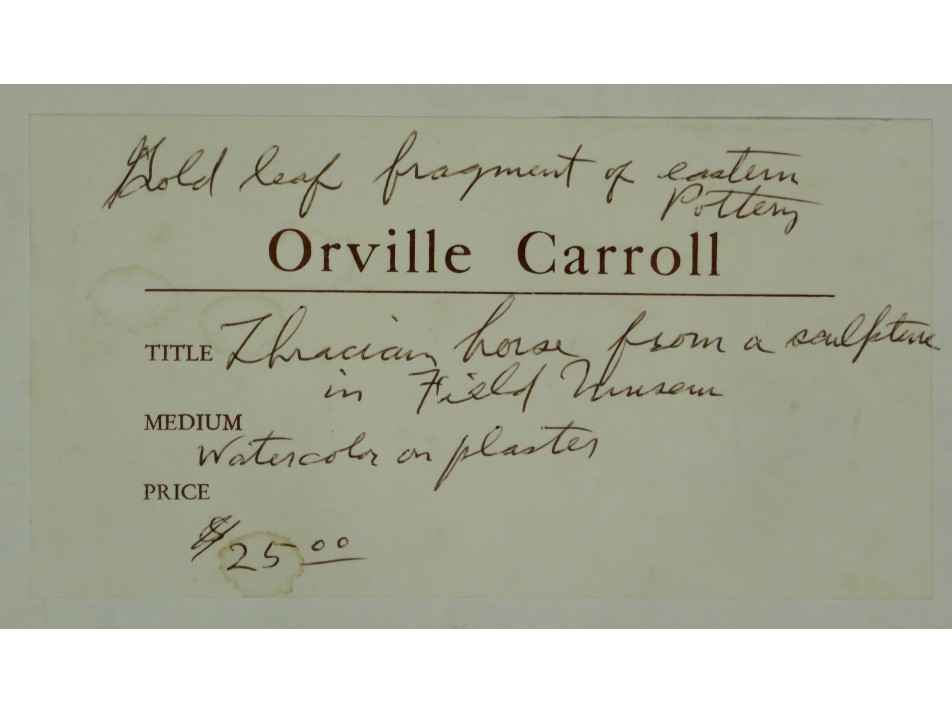 Gold leaf fragment of eastern
Pottery
Orville Carroll
TITLE Thracian horse from a sculpture
in Field Museum
MEDIUM
Watercolor on plaster
PRICE
$25.00